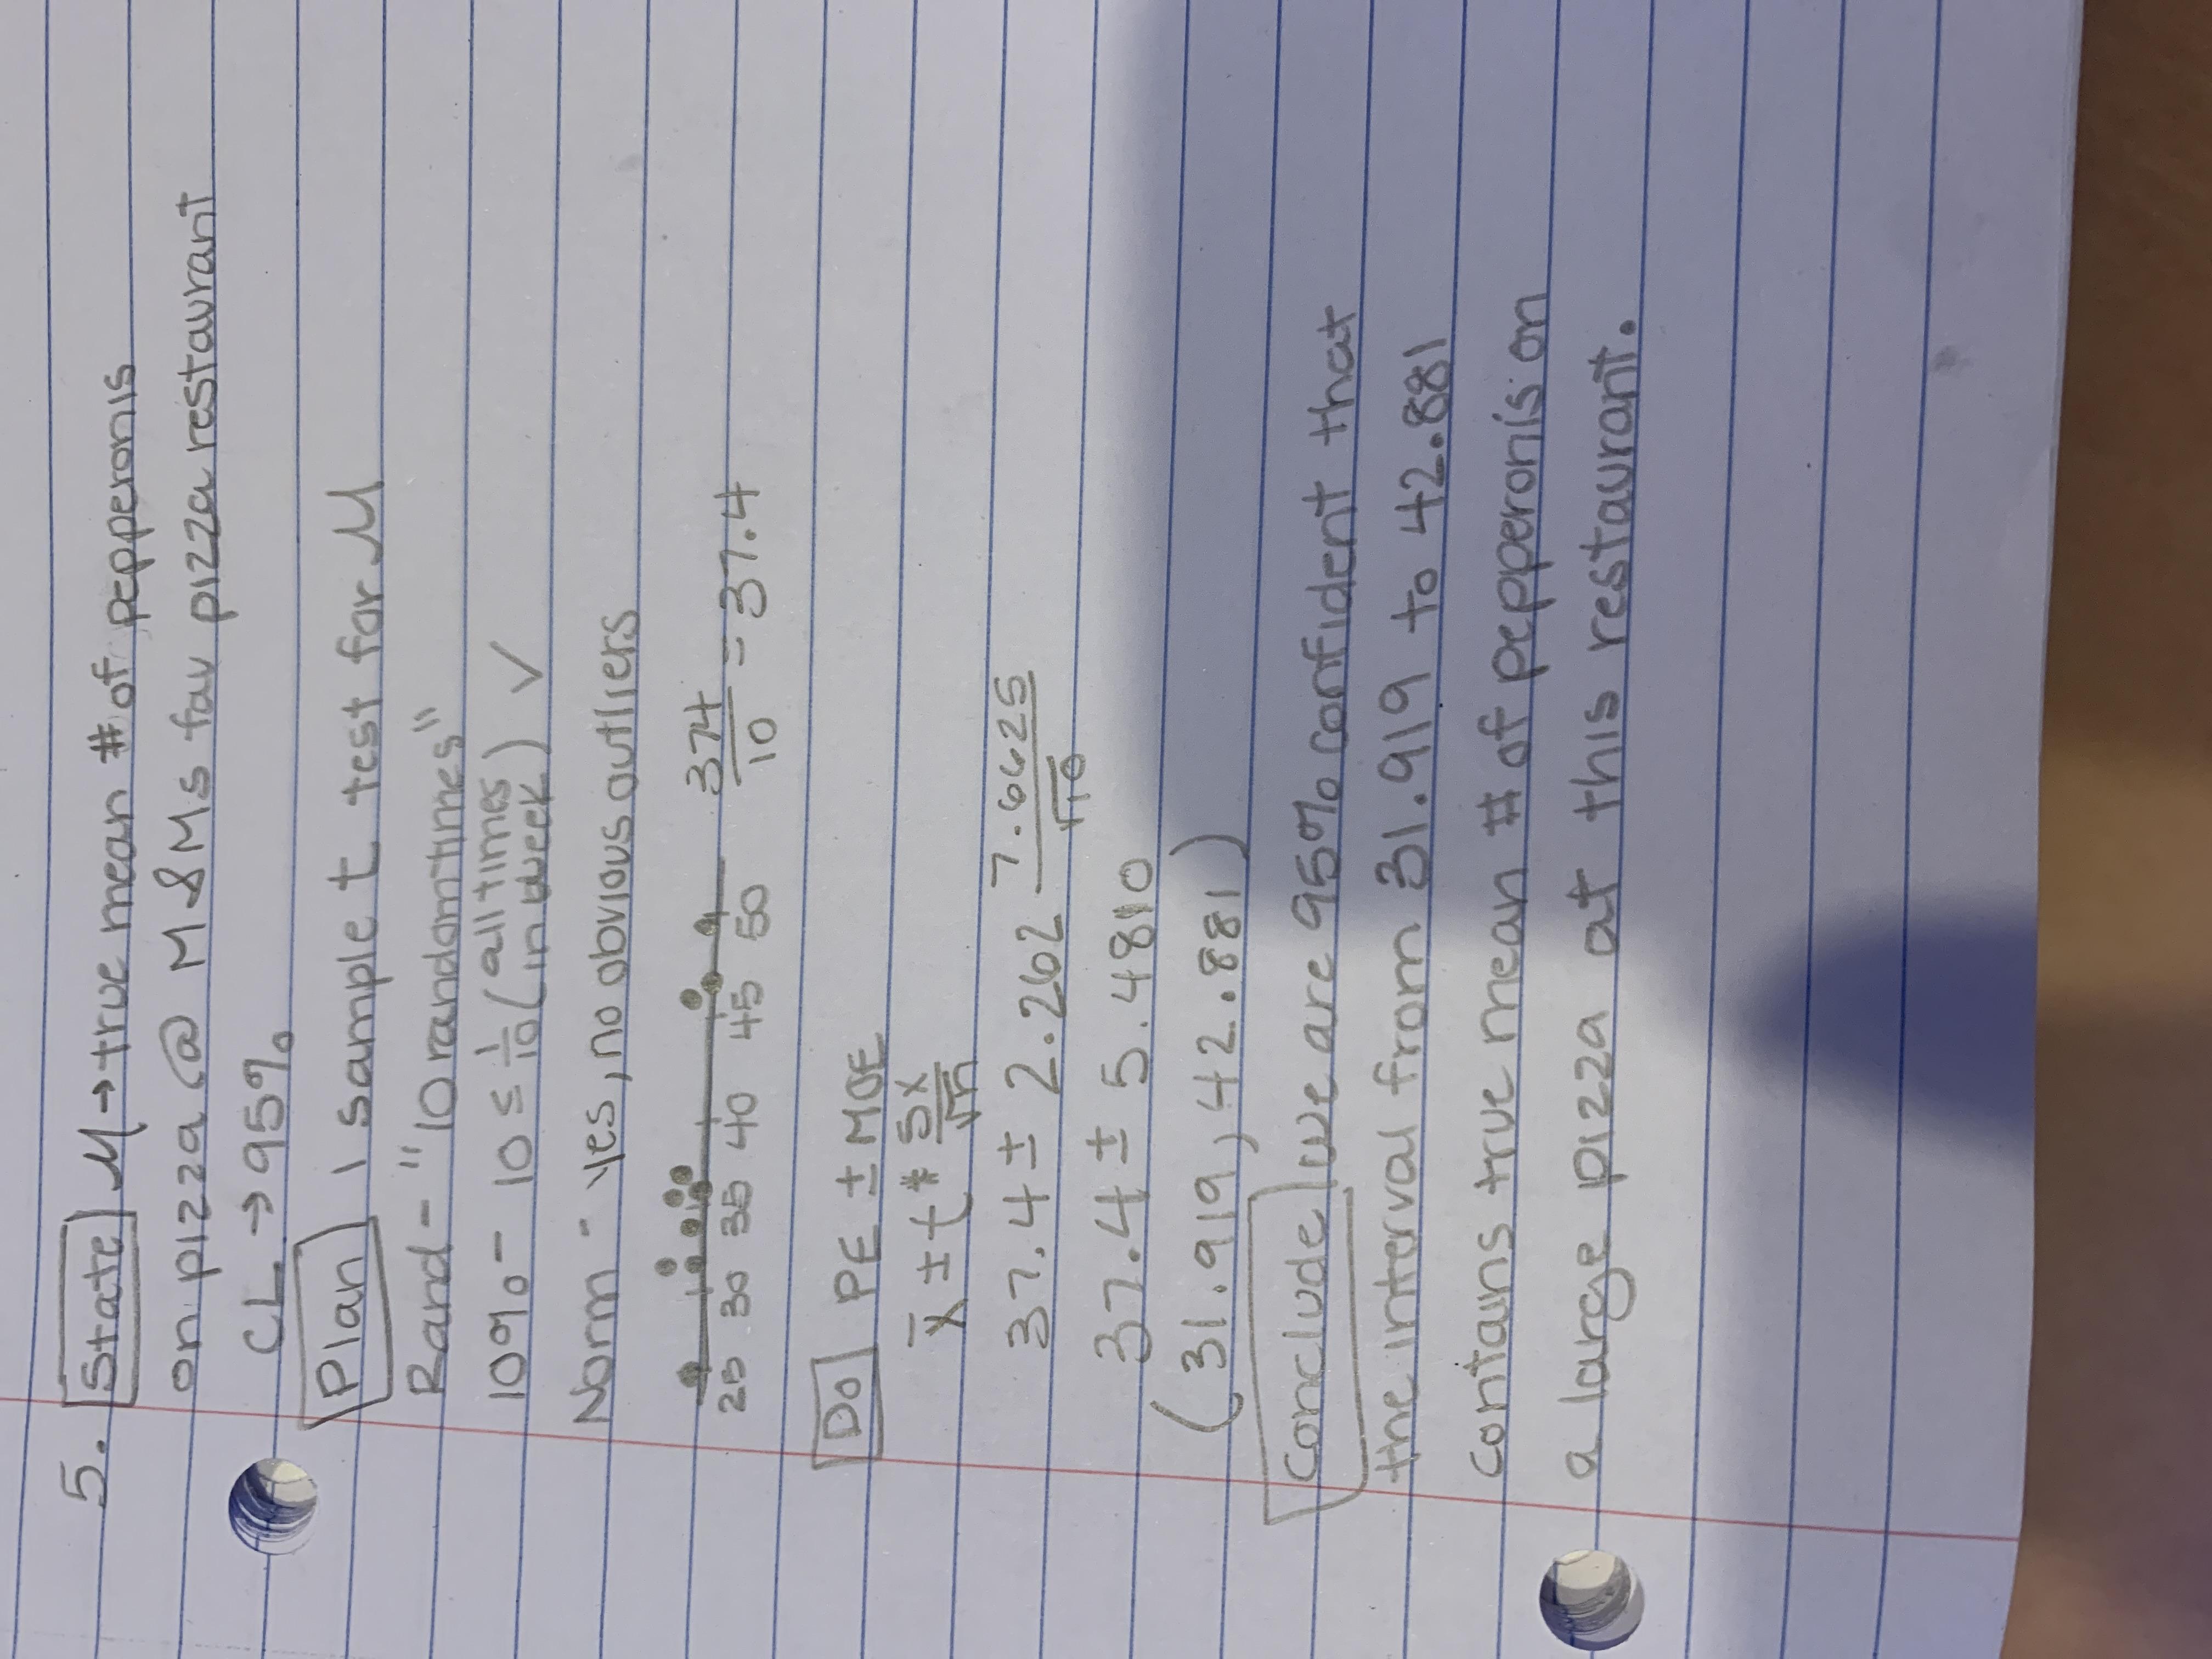 5. State μ→true mean # of pepperonis
on pizza @ M&Ms fav pizza restaurant
CL → 95%
Plan 1 sample t test for μ
Rand - "10 random times"
10% - 10 ≤ 1/10 (all times in week) ✓
Norm - yes, no obvious outliers
374/10 = 37.4
25 30 35 40 45 50
Do PE ± MOE
x̄ ± t* Sx/√n
37.4 ± 2.262 7.6625/√10
37.4 ± 5.4810
(31.919, 42.881)
Conclude we are 95% confident that
the interval from 31.919 to 42.881
contains true mean # of pepperonis on
a large pizza at this restaurant.